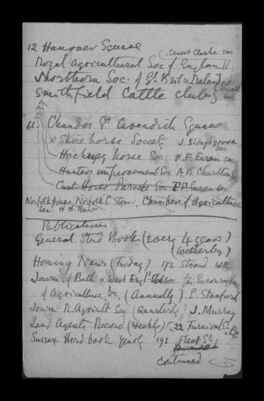 12 Hanover Square
Ernest Clarke Sec
Royal Agricultural Soc of England
Shorthorn Soc. of Gt Brit & Ireland
Smithfield Cattle Club
12 Chandos St Cavendish Square
Shire horse Society J. Sloughgrove Sec
Hackney horse Soc. H. F. Euren Sec
Hunters improvement Soc A. B. Charlton
Cart Horse Parade Soc Euren Sec
Norfolk House Norfolk St Strand. Chambers of Agriculture
Sec H. H.
Publications
General Stud Book (every 4 years)
(Wetherby)
Homing News (Friday) 172 Strand WC
Journ of Bath & West Engl Soc for Encouragem
of Agriculture &c. (Annually) E. Stanford
Journ R. Agricult Soc (Quarterly) J. Murray
Land Agents Record (Weekly) 22 Furnival St EC
Sussex Herd book Yearly 191 Fleet St.
continued